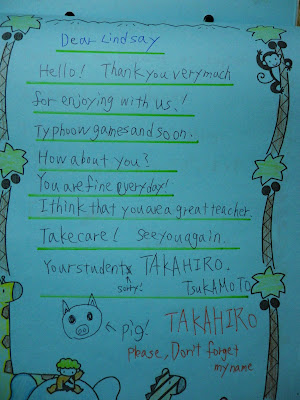 Dear Lindsay
Hello! Thank you very much
for enjoying with us!
Typhoon games and so on.
How about you?
You are fine everyday!
I think that you are a great teacher.
Take care! See you again.
Your student TAKAHIRO.
sorry! TSUKAMOTO
← pig! TAKAHIRO
Please, Don't forget
my name